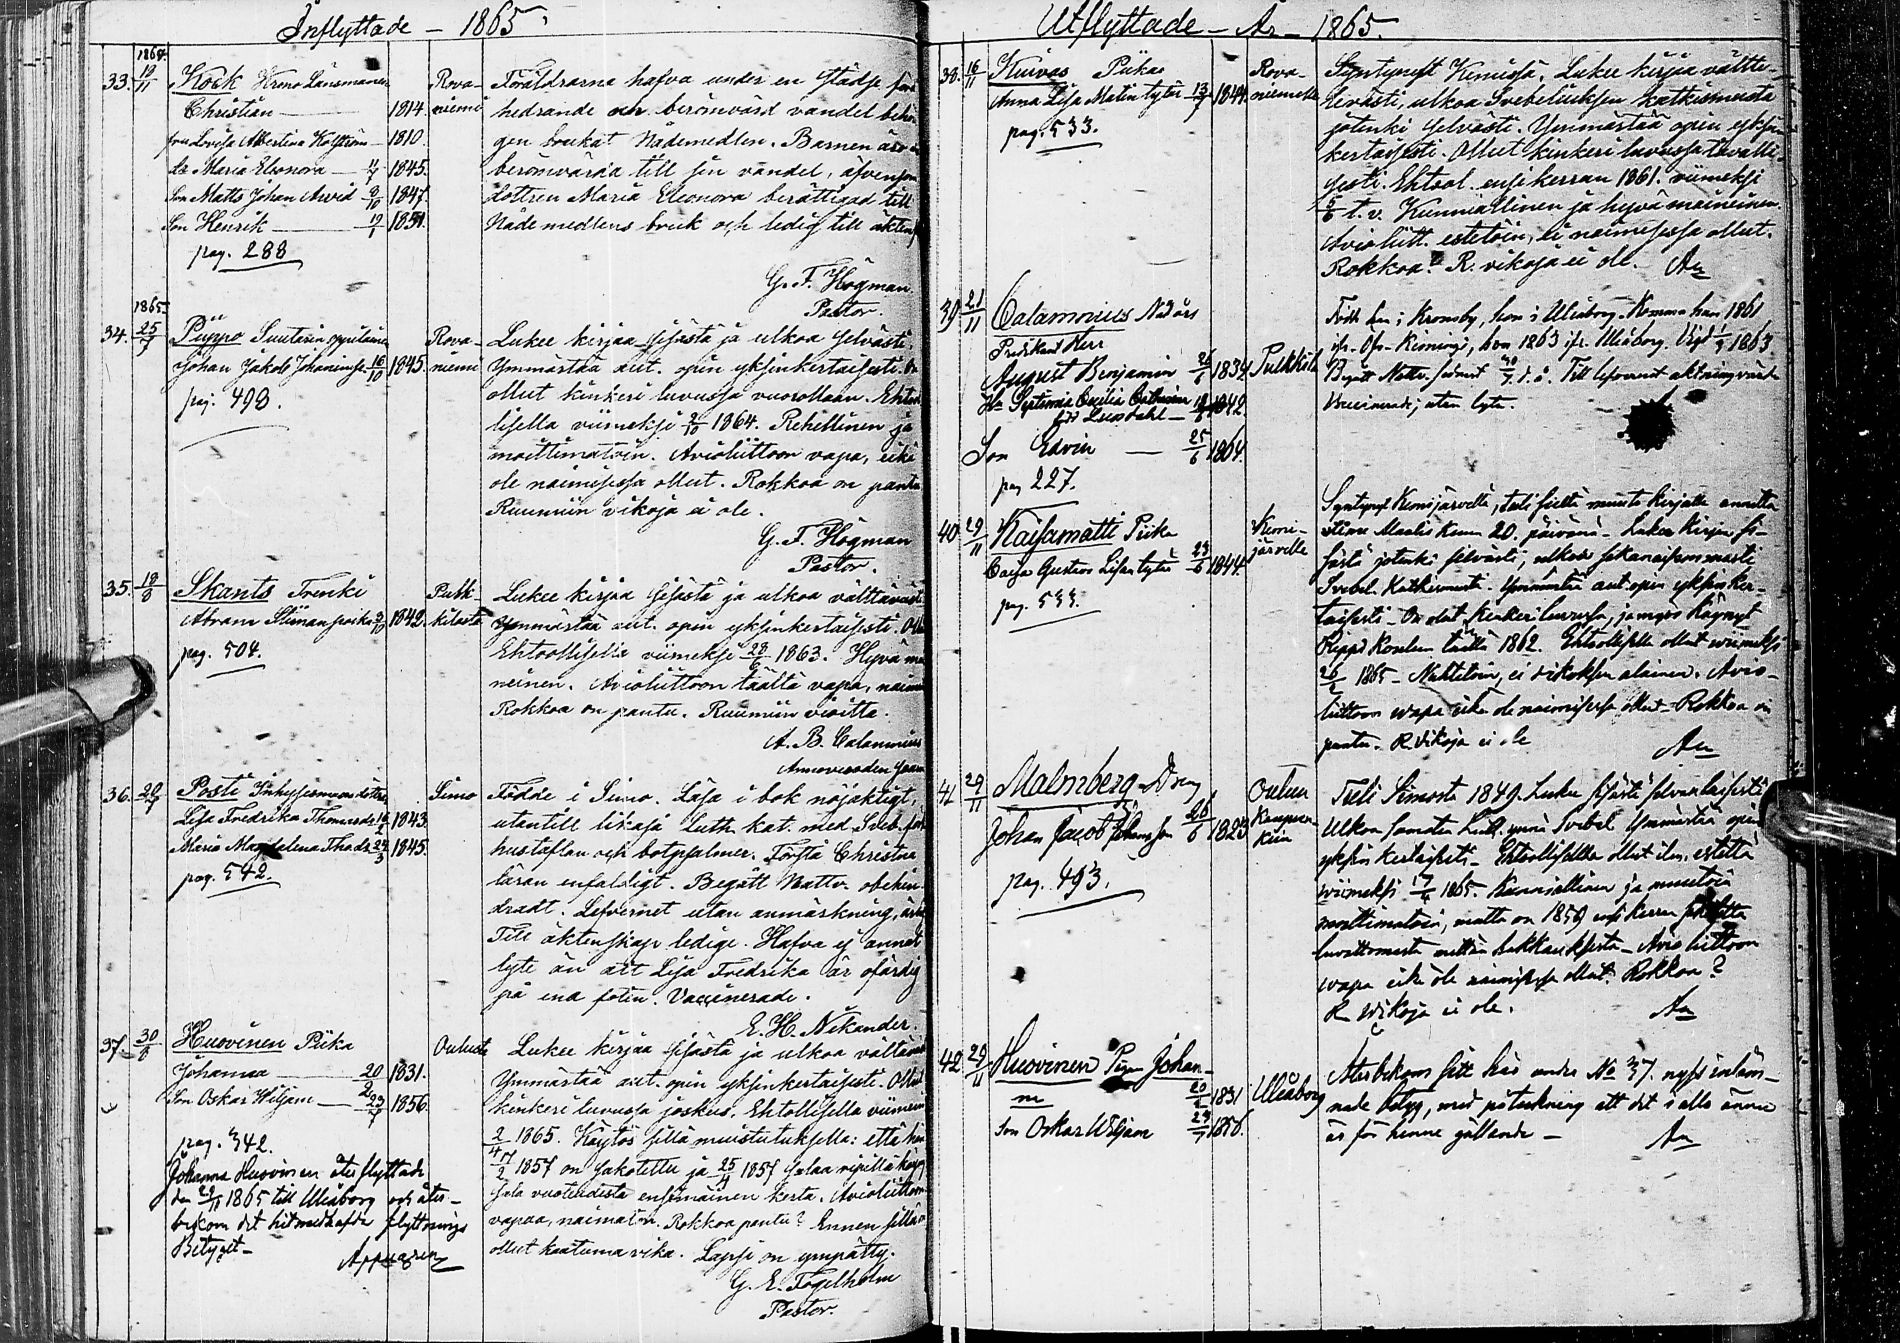 Inflyttade – 1865.
1864.
33. 19/11 Kock Krono Länsmannen
Christian 1814.
fru Lovisa Albertina Holström 1810.
dr Maria Eleonora 11/7 1845.
Son Matts Johan Arvid 9/10 1847.
Son Henrik 19/1 1851.
pag. 288
Rova-
niemi
Föräldrarna hafva under en städse
hedrande och berömvärd vandel
gen brukat Nådemedlen. Barnen äro
berömvärda till sin vandel, äfvensom
dottren Maria Eleonora berättigad till
Nådemedlens bruk och ledig till
G. F. Högman
Pastor.
1865.
34. 25/7 Piippo Suutarin oppilainen
Johan Jakob Johaninp. 16/10 1845.
pag. 498.
Rova-
niemi
Lukee kirjaa sisästä ja ulkoa selvästi
Ymmärtää aut. opin yksinkertaisesti.
ollut kinkeri luvussa vuorollaan.
lisella viimeksi 2/10 1864. Rehellinen ja
moittimatoin. Avioliittoon vapa, eikä
ole naimisissa ollut. Rokkoa on pantu
Ruumiin vikoja ei ole.
G. F. Högman
Pastor.
35. 18/8 Skants Trenki
Abram Stiiman poika 1842.
pag. 504.
Pulk-
kilasta
Lukee kirjaa sisästä ja ulkoa välttävästi
Ymmärtää aut. opin yksinkertaisesti.
Ehtoollisella viimeksi 28/6 1863. Hyvä mai
neinen. Avioliittoon täältä vapa,
Rokkoa on pantu. Ruumiin viatta.
A. B. Calamnius
36. 20/7 Posti Inhysesmans döttrar
Lisa Fredrika Thomasdr 1843.
Maria Magdalena Thadr 1845.
pag. 542.
Simo
Födde i Simo. Läsa i bok nöjaktigt,
utantill likaså Luth. kat. med Sveb.
hustaflan och botpsalmer. Förstå Christna
läran enfaldigt. Begått Nattv. obehin-
dradt. Lefvernet utan anmärkning,
Till äktenskap ledige. Hafva ej annat
lyte än att Lisa Fredrika är ofärdig
på ena foten. Vaccinerade.
E. H. Nikander.
37. 30/8 Huovinen Piika
Johanna 20/2 1831.
Son Oskar Wiljam 23/7 1856.
pag. 342.
Johanna Huovinen återflyttade
den 29/11 1865 till Uleåborg och åter-
bekom det hitmedhafda flyttnings
Betyget –
Appelgren
Oulusta
Lukee kirjaa sisästä ja ulkoa
Ymmärtää aut. opin yksinkertaisesti.
kinkeri luvussa joskus. Ehtollisella
2/4 1865. Käytös sillä muistutuksella: että
1857 on sakotettu ja 25/4 1857
sala vuoteudesta ensimäinen kerta. Avioliittoon
vapaa, naimaton. Rokkoa pantu? Ennen
ollut kaatuma vika. Lapsi on ympätty.
G. E. Fogelholm
Pastor.
Utflyttade – År – 1865.
38. 16/11 Kuivas Piika
Anna Lisa Matin tytär 1844
pag. 533.
Rova-
niemelle
Syntynyt Kemissä. Lukee kirjaa vältte-
levästi, ulkoa Svebeliuksen katkismusta
jotenki selvästi. Ymmärtää opin yksin-
kertaisesti. Ollut kinkeri luvussa tavalli-
sesti. Ehtool. ensi kerran 1861. viimeksi
5/6 t. v. Kunniallinen ja hyvä maineinen.
Avioliitt. estetoin, ei naimisissa ollut.
Rokkoa? R. vikoja ei ole.
39 21/11 Calamnius Nådårs
Predikant Herr
August Benjamin 26/6 1834
Fru Septemia Cecilia 1842.
Son Edvin 25/6 1864.
pag 227.
Pulkkila
Född han i Kronoby, hon i Uleåborg. Komna han 1861
ifr. Öfv. Kiimingi, hon 1863 ifr. Uleåborg. Vigd 1863
Begått Nattv. senast t. å. Till lefvernet aktningsvärda
Vaccinerade, utan lyte.
40 29/11 Kaisamatti Piika
Caisa Gustava Lisan tytär 23/6 1844.
pag. 533.
Kemi-
järvelle
Syntynyt Kemijärvellä, tuli sieltä
Maalis kuun 20. päivänä. Lukee kirjaa si-
sästä jotenki selvästi, ulkoa
Svebel. Katkismusta. Ymmärtää aut. opin yksinker-
taisesti. On ollut kinkeri luvussa, ja myös käynyt
Rippi Koulun täällä 1862. Ehtoollisella ollut viimeksi
1865 – Nuhtetoin, ei rikoksen alainen. Avio-
liittoon wapa eikä ole naimisissa ollut – Rokkoa on
pantu. R. vikoja ei ole
41 29/11 Malmberg Dreng
Johan Jacob Johansson 26/6 1823
pag. 493.
Oulun
Kaupun-
kiin
Tuli Simosta 1849. Lukee sisästä selvänlaisesti
Ulkoa samaten Luth. ynnä Svebel. Ymmärtää opin
yksinkertaisesti – Ehtoollisella ollut ilm. estettä
viimeksi 1865. Kunniallinen ja muutoin
moittimatoin, mutta on 1859 ensi kerran
luvattomasta viinan
Avioliittoon
wapa eikä ole naimisissa ollut. Rokkoa?
R. Wikoja ei ole.
42 29/11 Huovinen Pigan Johan-
na 20/2 1831
Son Oskar Wiljam 23/7 1856.
Uleåborg
Återbekom sitt här under No 37. nyss inläm-
nade betyg, med påteckning att det i allo ännu
är för henne gällande –